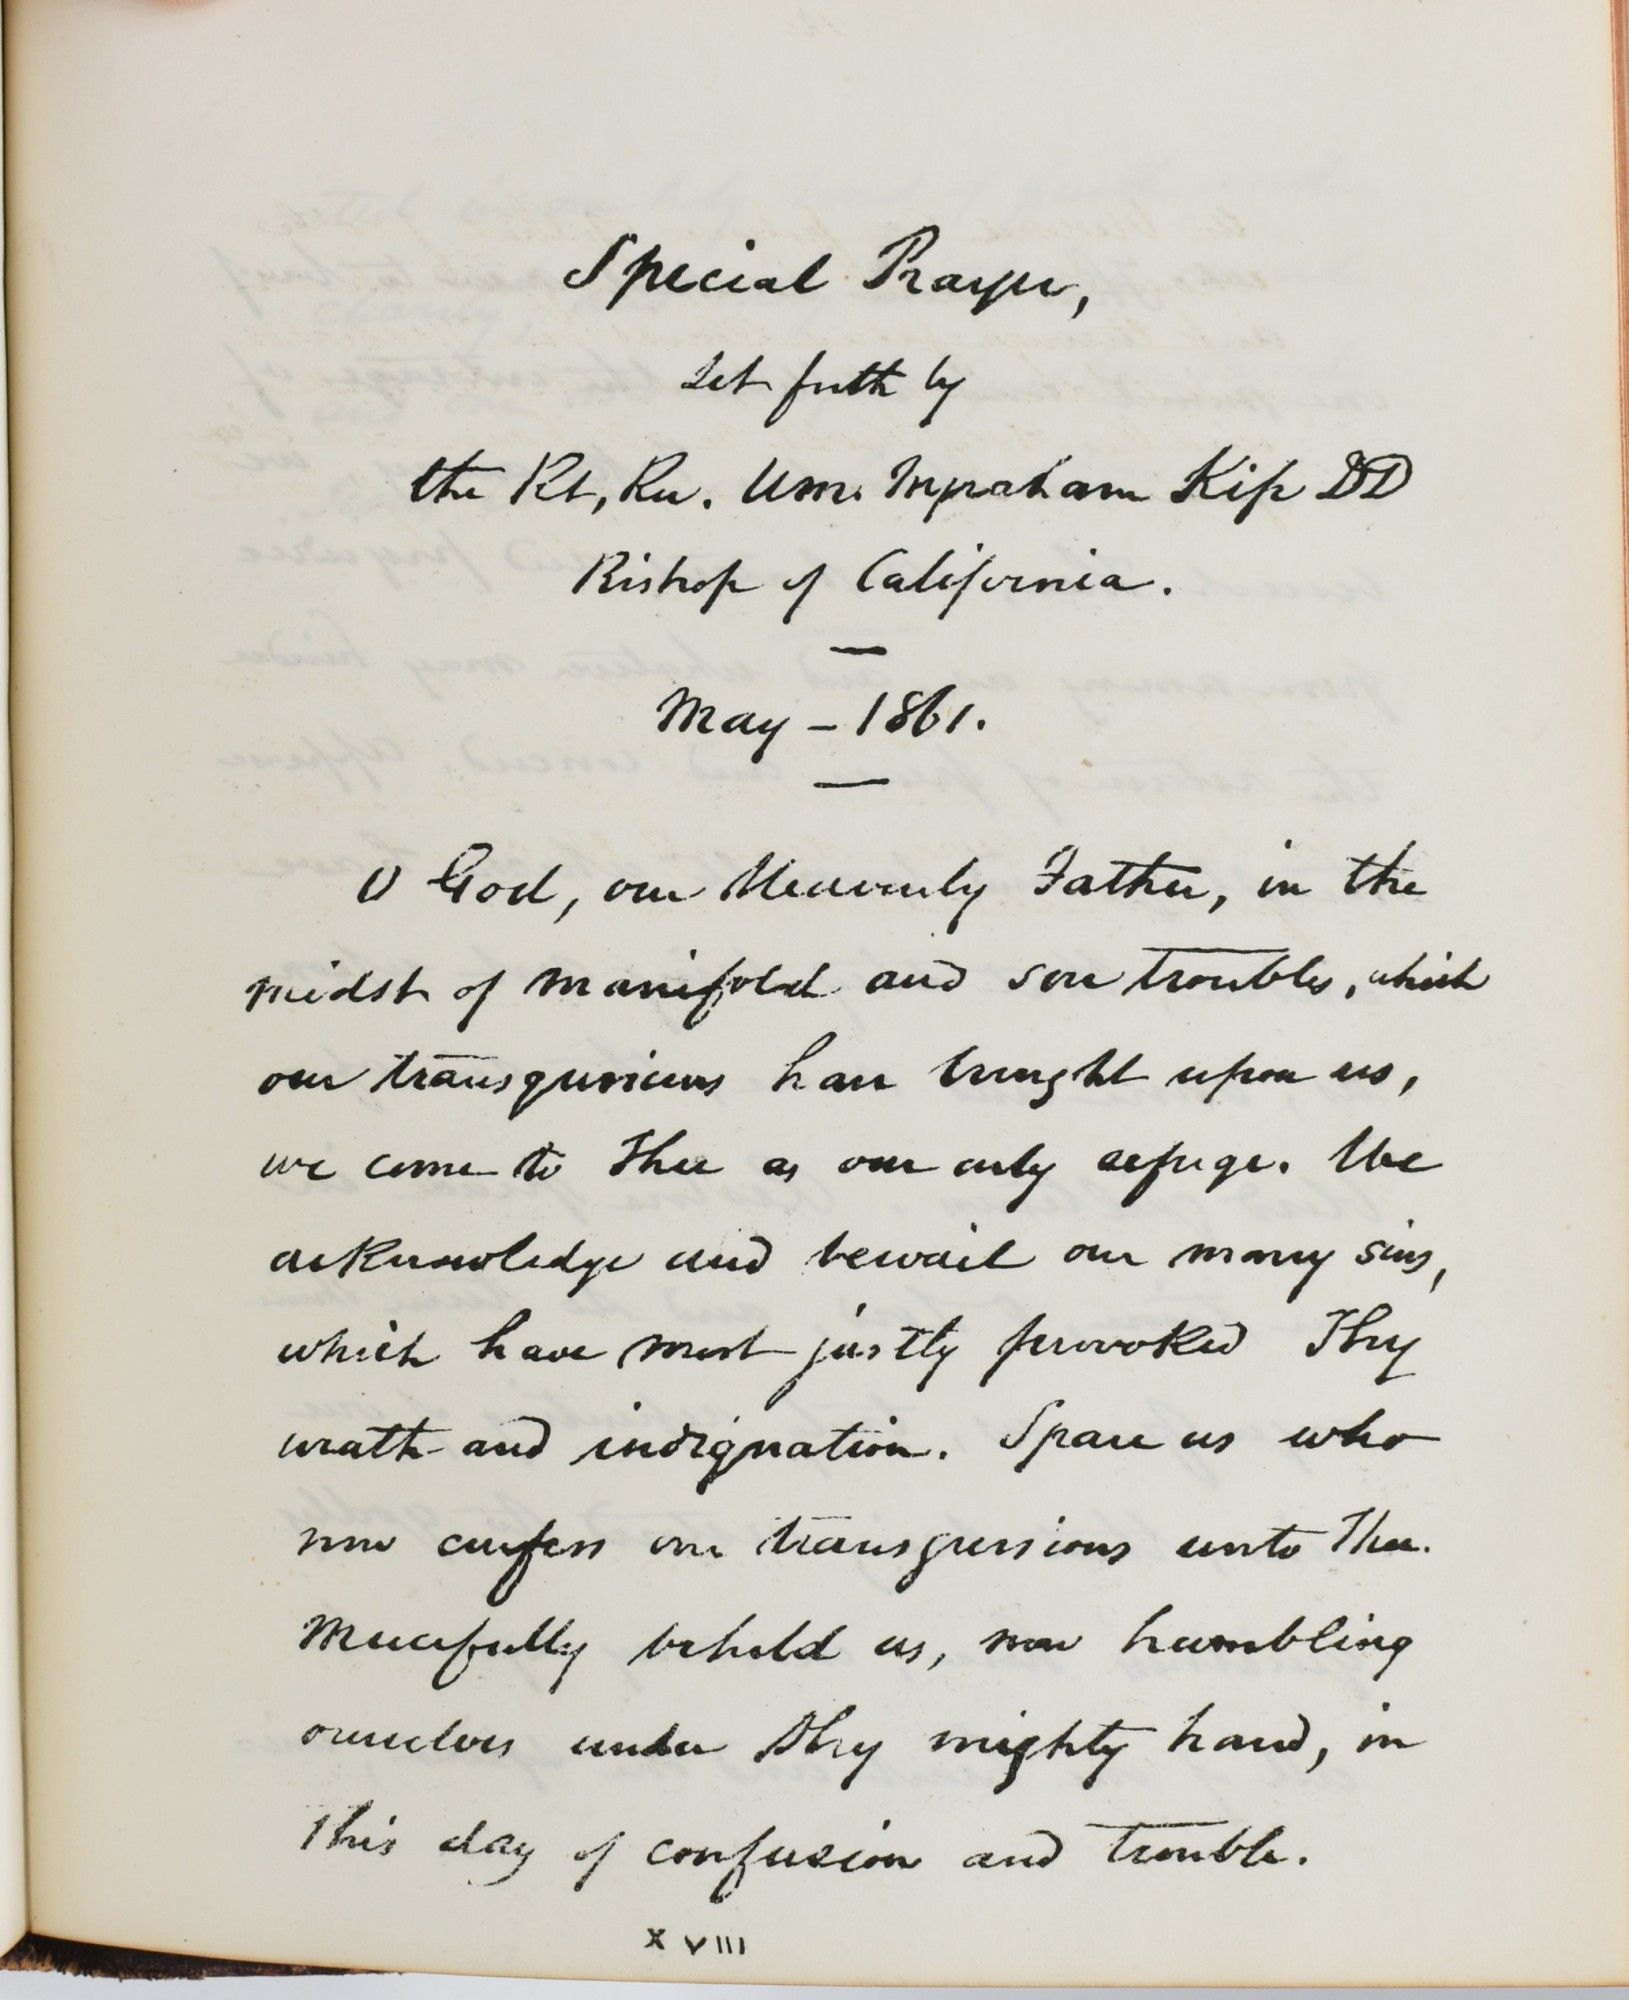 Special Prayer,
Set forth by
the Rt, Rev. Wm. Ingraham Kip DD
Bishop of California.
—
May – 1861.
—
O God, our Heavenly Father, in the
midst of manifold and sore troubles, which
our transgressions have brought upon us,
we come to Thee as our only refuge. We
acknowledge and bewail our many sins,
which have most justly provoked Thy
wrath and indignation. Spare us who
now confess our transgressions unto Thee.
Mercifully behold us, now humbling
ourselves under Thy mighty hand, in
this day of confusion and trouble.
XVIII